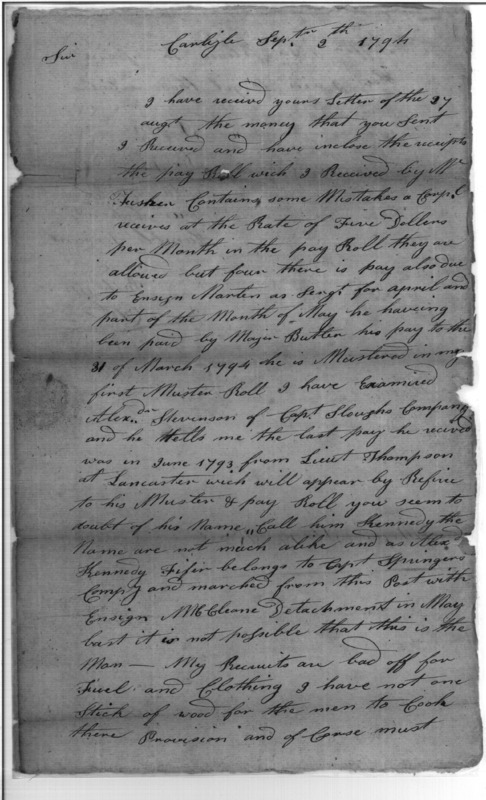 Carlisle Sepr. 3th 1794
Sir
I have receivd yours Letter of the 27
augt the money that you Sent
I Received and have inclose the receipts
the pay Roll wich I Received by Mr
Contains some Mistakes a Corpl
receives at the Rate of Five Dollers
per Month in the pay Roll they are
allowed but four there is pay also due
to Ensign Marten as Sergt for april and
part of the Month of May he haveing
been paid by Major Butler his pay to the
31 of March 1794 he is Mustered in my
first Muster Roll I have Examired
Alexdr Stevenson of Capt Sloughs Company
and he tells me the last pay he recived
was in June 1793 from Lieut Thompson
at Lancaster wich will appear by Refire
to his Muster & pay Roll you seem to
doubt of his Name, Call him Kennedy the
Name are not much alike and as Alexd
Kennedy Fifer belongs to Capt Springers
Compy and marched from this Post with
Ensign McCleane Detachment in May
last it is not possible that this is the
Man — My Recruits are bad off for
Fuel and Clothing I have not one
Stick of wood for the men to Cook
there Provision and of Corse must